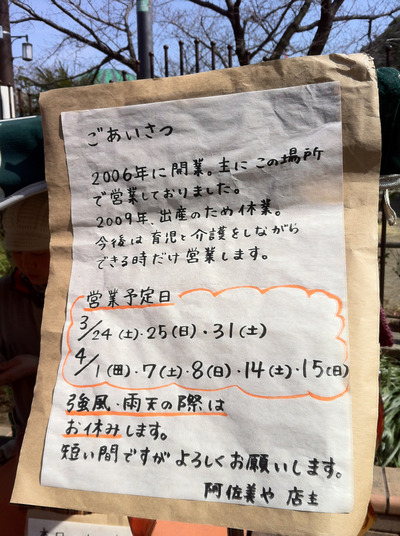 ごあいさつ
2006年に開業。主にこの場所
で営業しておりました。
2009年、出産のため休業。
今後は育児と介護をしながら
できる時だけ営業します。
営業予定日
3/24(土)・25(日)・31(土)
4/1(日)・7(土)・8(日)・14(土)・15(日)
強風・雨天の際は
お休みします。
短い間ですがよろしくお願いします。
阿佐美や 店主